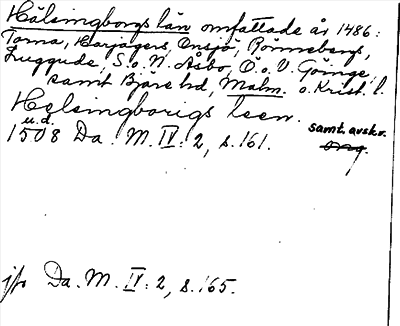 Hälsingborgs län omfattade år 1486:
Torna, Harjagers, Onsjö, Rönnebergs,
Luggude, S. o. N. Åsbo, Ö. o. V. Göinge,
samt Bjäre hd, Malm. o. Krist. l.
Helsingborigs leen.
u.d. samt. avskr.
1508 Da. M. IV: 2, s. 161. orig.
jfr Da. M. IV: 2, s. 165.